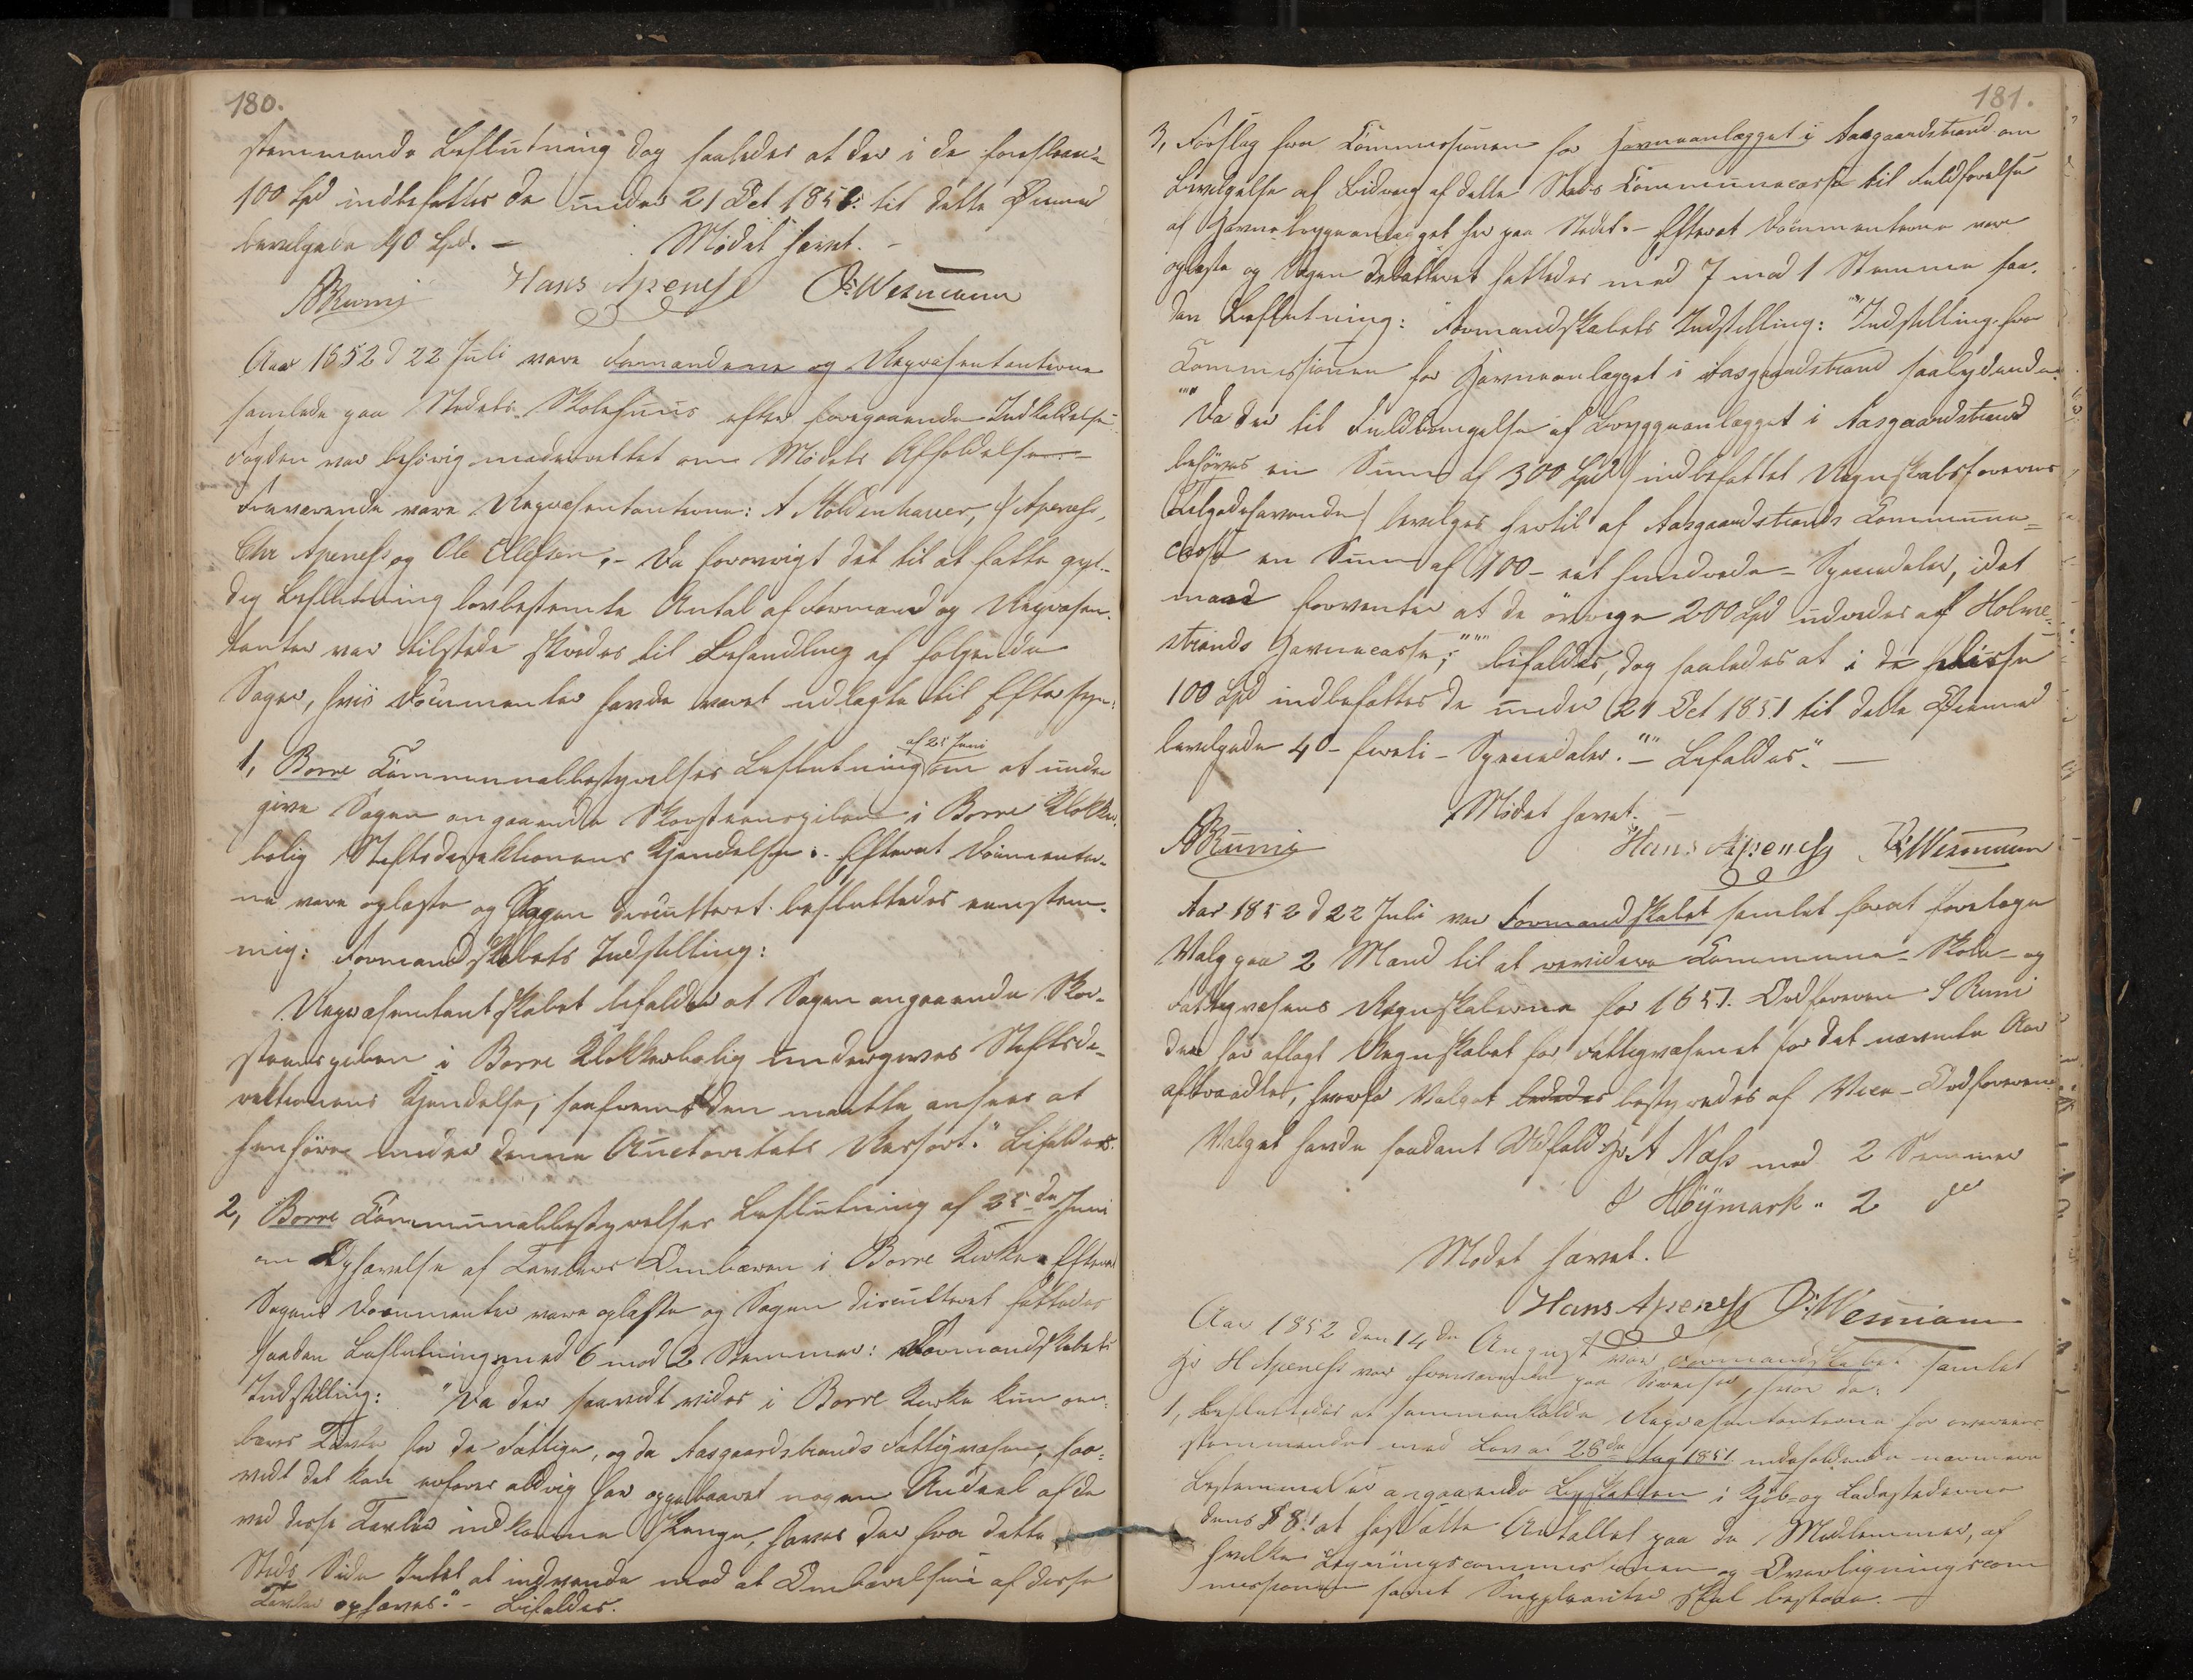 180.
stemmende Beslutning dog saaledes at der i de foreslaaede
100 Spd indbefattes de under 21 Oct 1851 til dette Øiemed
bevilgede 40 Spd. — Mødet hævet. —
SRumi Hans Apeness Wesmann
Aar 1852 d 22 Juli vare Formændene og Repræsentanterne
samlede paa Stedets Skolehuus efter foregaaende Indkaldelse.
Fogden var behørig underrettet om Mødets Afholdelse. —
Fraværende vare Repræsentanterne: A Moldenhauer, Apeness,
Chr Apeness og Ole Ellefsen. — Da forøvrigt det til at fatte gyl-
dig Beslutning lovbestemte Antal af Formænd og Repræsen-
tanter var tilstede skredes til Behandling af følgende
Sager, hvis Documenter havde været udlagte til Eftersyn:
af 25 Juni
1, Borre Communalbestyrelses Beslutning om at under-
give Sagen angaaende Skorsteenspiben i Borre Klokker-
bolig Stiftsdirektionens Kjendelse. — Efterat Documenter-
ne vare oplæste og Sagen discutteret besluttedes eenstem-
mig: Formandskabets Indstilling:
"Repræsentantskabet bifalder at Sagen angaaende Skor-
steenspiben i Borre Klokkerbolig undergives Stiftsdi-
rektionens Kjendelse, saafremt den maatte ansees at
henhøre under denne Auctoritets Ressort." Bifaldes.
2, Borre Communalbestyrelses Beslutning af 25de Juni
om Ophævelse af Tavlers Ombæren i Borre Kirke. Efterat
Sagens Documenter vare oplæste og Sagen discutteret fattedes
saadan Beslutning med 6 mod 2 Stemmer: Formandskabets
Indstilling: "Da der saavidt vides i Borre Kirke kun om-
bæres Tavler for de Fattige, og da Aasgaardstrands Fattigvæsen, saa-
vidt det kan erfares aldrig har oppebaaret nogen Andeel af de
ved disse Tavler indkomne Penge, haves der fra dette
Steds Side Intet at indvende mod at Ombærelsen af disse
Tavler ophæves." — Bifaldes.
181.
3, Forslag fra Commissionen for Havneanlægget i Aasgaardstrand om
Bevilgelse af Bidrag af dette Steds Communecasse til Fuldførelse
af Havnebryggeanlægget her paa Stedet. — Efterat Documenterne vare
oplæste og Sagen debatteret fattedes med 7 mod 1 Stemme saa-
dan Beslutning: Formandskabets Indstilling: "Indstilling fra
Commissionen for Havneanlægget i Aasgaardstrand saalydende:
"Da der til Fuldbringelse af Bryggeanlægget i Aasgaardstrand
behøves en Sum af 300 Spd (indbefattet Regnskabsførerens
Tilgodehavende) bevilges hertil af Aasgaardstrands Commune-
casse en Sum af 100 – eet hundrede – Speciedaler, idet
man forventer at de øvrige 200 Spd udredes af Holme-
strands Havnecasse;" bifaldes, dog saaledes at i de disse
100 Spd indbefattes de under 21 Oct 1851 til dette Øiemed
bevilgede 40 – firti – Speciedaler." — Bifaldes". —
Mødet hævet. —
SRumi Hans Apeness Wesmann
Aar 1852 d 22 Juli var Formandskabet samlet forat foretage
Valg paa 2 Mænd til at revidere Commune- Skole- og
Fattigvæsens Regnskaberne for 1851. Ordføreren S Rumi
der har aflagt Regnskabet for Fattigvæsenet for det nævnte Aar
aftraadte, hvorfor Valget ledede bestyredes af Vice-Ordføreren
Valget havde saadant Udfald: Hr A Næss med 2 Stemmer
Höÿmark " 2 do
Mødet hævet. —
Hans Apeness Wesmann
Aar 1852 den 14de August var Formandskabet samlet
Hr H Apeness var fraværende paa Søreise, hvor da:
1, Besluttedes at sammenkalde Repræsentanterne for overeens-
stemmende med Lov af 28de Aug 1851 indeholdende nærmere
Bestemmelser angaaende Byskatten i Kjøb- og Ladestederne
dens § 8 at fastsætte Antallet paa de Medlemmer, af
hvilke Ligningscommissionen og Overligningscom-
missionen samt Suppleanter skal bestaae. —